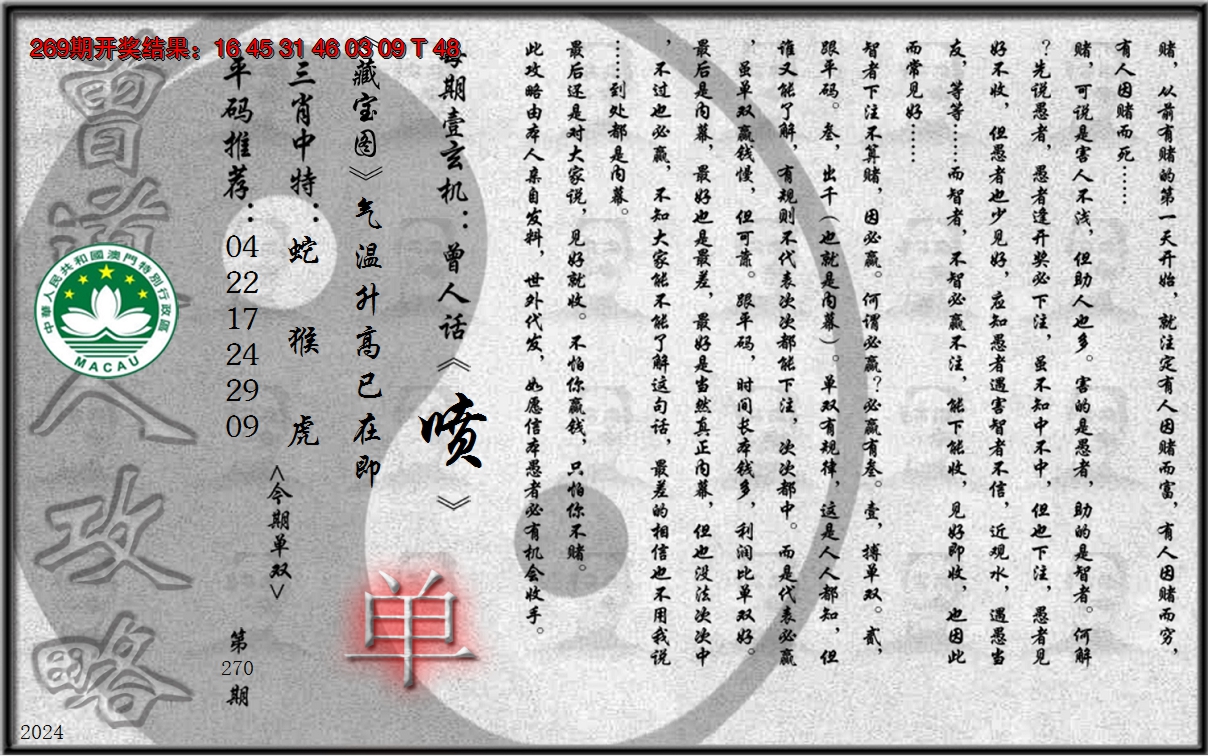 269期开奖结果：16 45 31 46 03 09 T 48
赌，从前有赌的第一天开始，就注定有人因赌而富，有人因赌而穷，
有人因赌而死……
赌，可说是害人不浅，但助人也多。害的是愚者，助的是智者。何解
？先说愚者，愚者逢开奖必下注，虽不知中不中，但也下注，愚者见
好不收，但愚者也少见好，应知愚者遇害智者不信，近观水，遇愚当
友，等等……而智者，不智必赢不注，能下能收，见好即收，也因此
而常见好……
智者下注不算赌，因必赢。何谓必赢？必赢有叁。壹，搏单双。贰，
跟平码。叁，出千（也就是内幕）。单双有规律，这是人人都知，但
谁又能了解，有规则不代表次次都能下注，次次都中。而是代表必赢
，虽单双赢钱慢，但可靠。跟平码，时间长本钱多，利润比单双好。
最后是内幕，最好也是最差，最好是当然真正内幕，但也没法次次中
，不过也必赢，不知大家能不能了解这句话，最差的相信也不用我说
……到处都是内幕。
最后还是对大家说，见好就收。不怕你赢钱，只怕你不赌。
此攻略由本人亲自发料，世外代发，如愿信本愚者必有机会收手。
每期壹玄机：曾人话《喷》
《藏宝图》气温升高已在即
单
三肖中特：蛇 猴 虎
<今期单双>
平码推荐：04 22 17 24 29 09
第270期
曾道人攻略
中華人民共和國澳門特別行政區
MACAU
2024